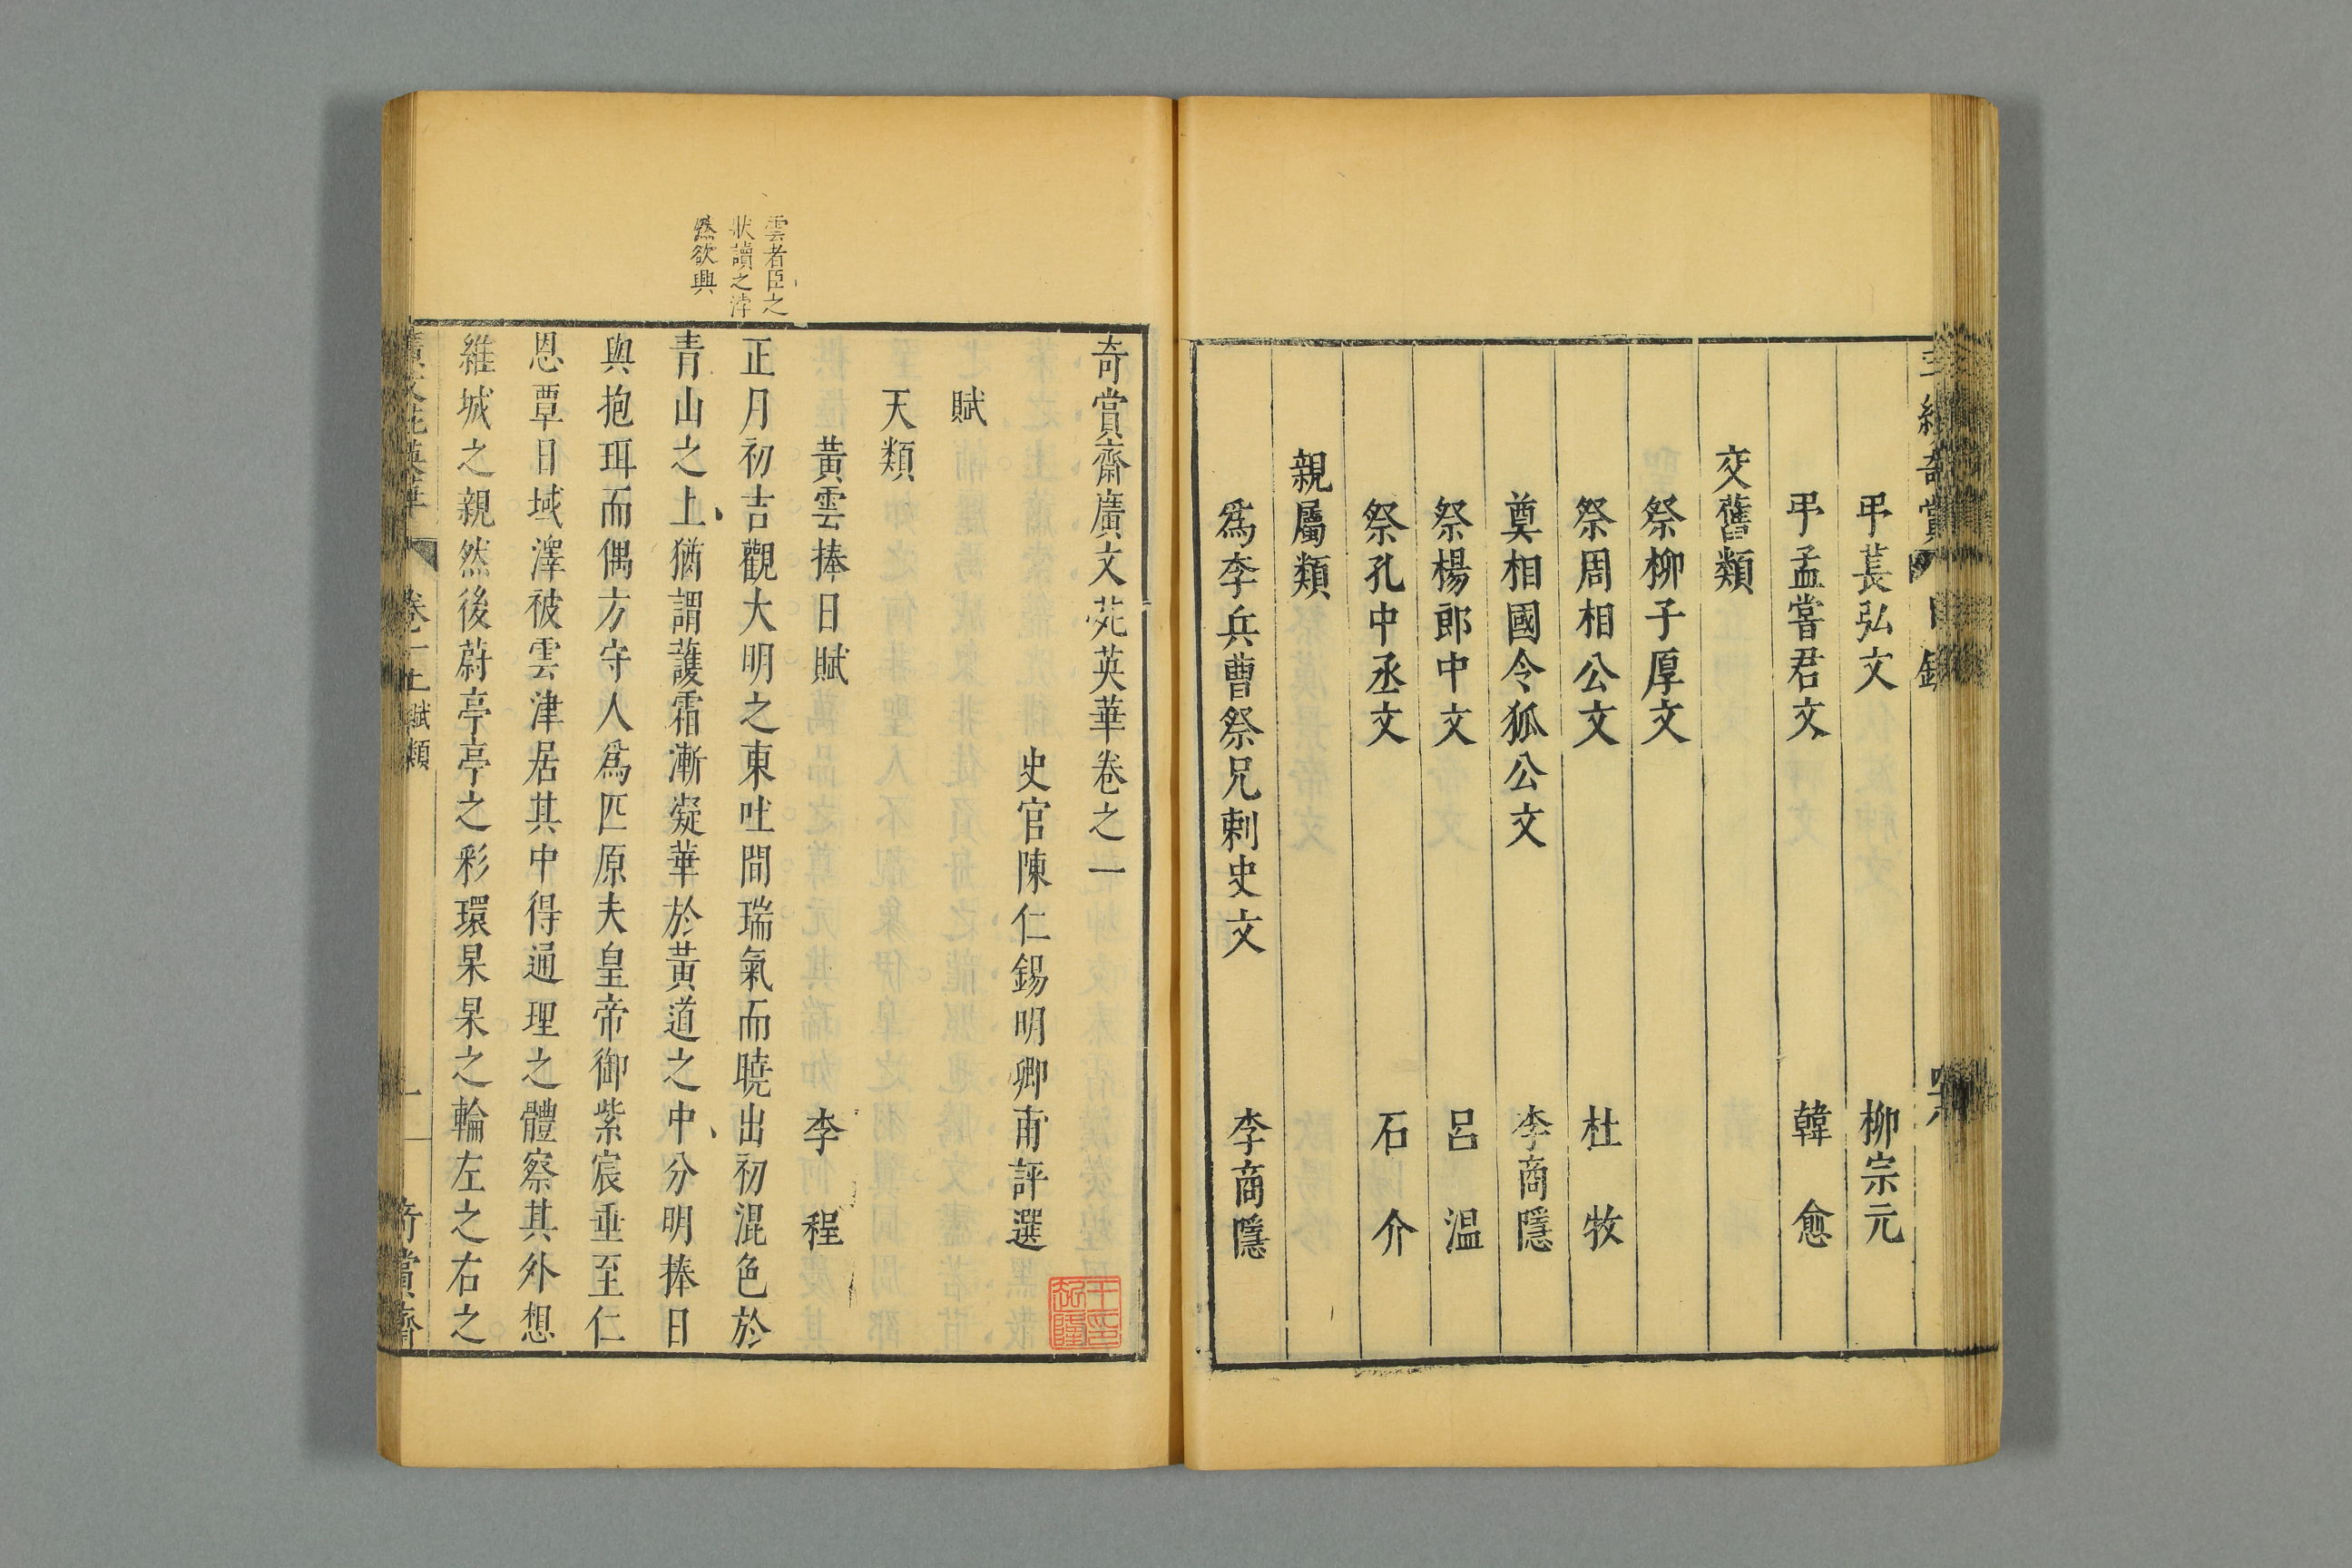 弔萇弘文 柳宗元
弔孟嘗君文 韓愈
交舊類
祭柳子厚文
祭周相公文 杜牧
奠相國令狐公文 李商隱
祭楊郎中文 呂温
祭孔中丞文 石介
親屬類
爲李兵曹祭兄剌史文 李商隱
奇賞齋廣文苑英華卷之一
史官陳仁錫明卿甫評選
賦
天類
黃雲捧日賦 李程
雲者臣之
狀讀之浡
然欲興
正月初吉觀大明之東吐間瑞氣而曉出初混色於
青山之上猶謂護霜漸凝華於黃道之中分明捧日
與抱珥而偶方守人爲匹原夫皇帝御紫宸垂至仁
恩覃日域澤被雲津居其中得通理之體察其外想
維城之親然後蔚亭亭之彩環杲杲之輪左之右之
廣文苑英華 卷一上賦類 一 奇賞齋